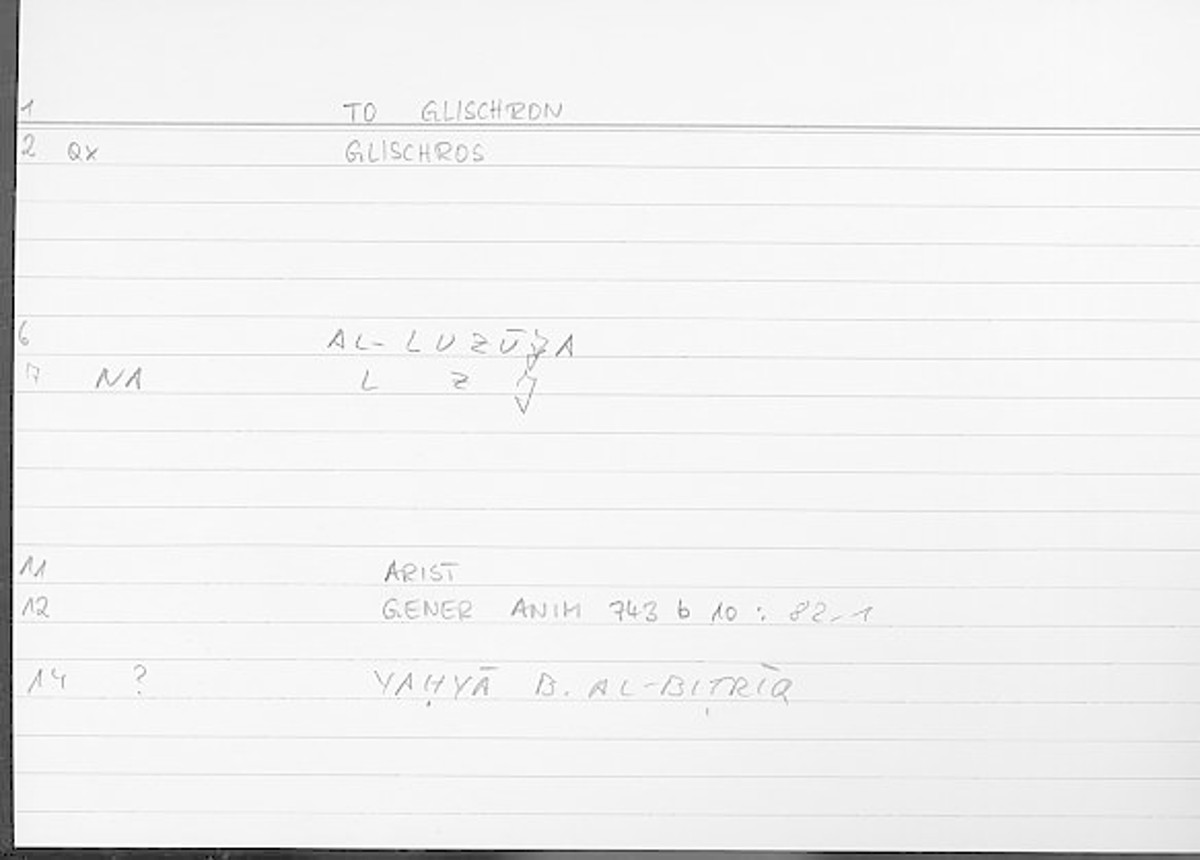 1 TO GLISCHRON
2 QX GLISCHROS
6 AL-LUZŪǦA
7 NA L Z Ǧ
11 ARIST
12 GENER ANIM 743 b 10 : 82,1
14 ? YAḤYĀ B. AL-BIṬRĪQ